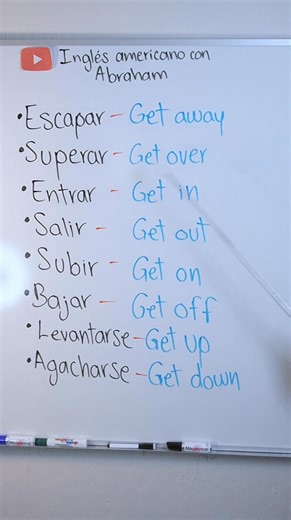 Inglés americano con
Abraham
•Escapar - Get away
•Superar - Get over
•Entrar - Get in
•Salir - Get out
•Subir - Get on
•Bajar - Get off
•Levantarse - Get up
•Agacharse - Get down